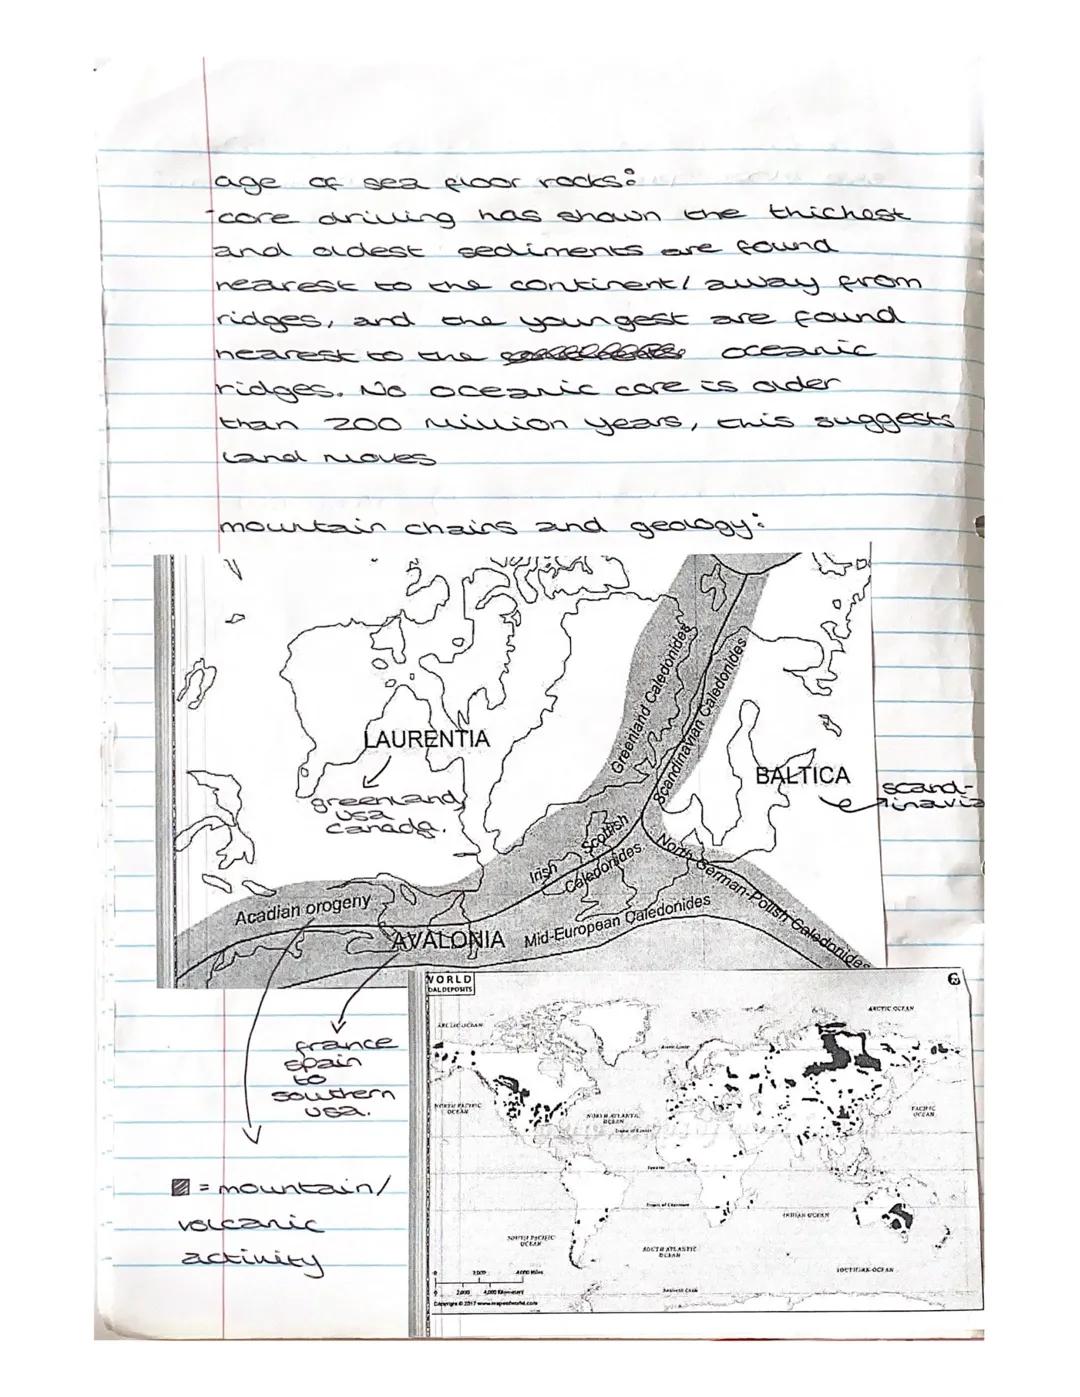 age of sea floor rocks:
-core drilling has shown the thickest
and oldest sediments are found
nearest to the continent/ away from
ridges, and the youngest are found
nearest to the oceanic
ridges. No oceanic core is older
than 200 million years, this suggests
land moves
mountain chains and geology:
Greenland Caledonides
Scandinavian Caledonides
LAURENTIA
greenland
usa
canada.
BALTICA
scand-
inavia
Scottish
Irish
Caledonides
North German-Polish Caledonides
Acadian orogeny
AVALONIA
Mid-European Caledonides
france
spain
to
southern
usa.
= mountain/
volcanic
activity
WORLD
COAL DEPOSITS
ARCTIC OCEAN
ARCTIC OCEAN
Arctic Circle
NORTH PACIFIC
OCEAN
NORTH ATLANTIC
OCEAN
Tropic of Cancer
PACIFIC
OCEAN
Equator
Tropic of Capricorn
INDIAN OCEAN
SOUTH PACIFIC
OCEAN
SOUTH ATLANTIC
OCEAN
SOUTHERN OCEAN
0 2,000 4,000 Miles
0 2,000 4,000 Kilometers
Copyright © 2017 www.mapsofworld.com